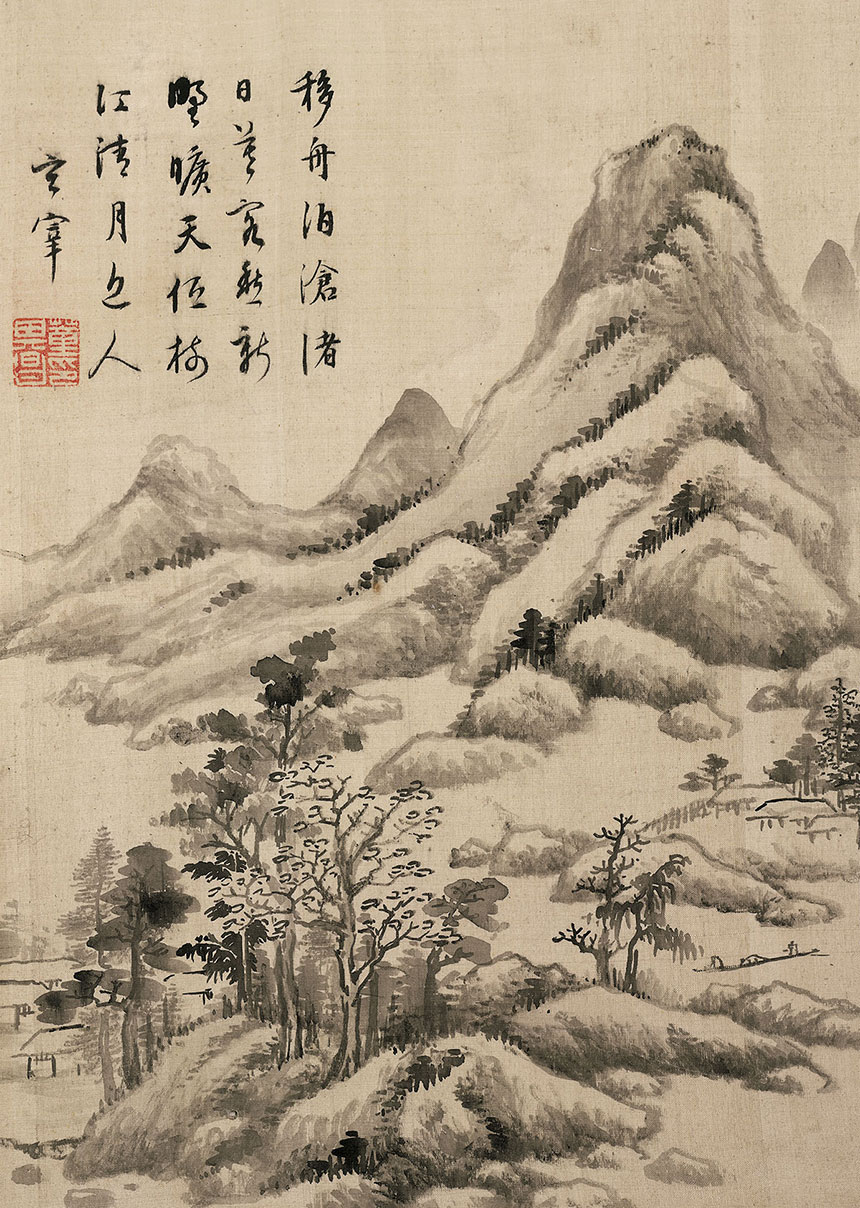 移舟泊滄渚
日暮客愁新
野曠天低樹
江清月近人
玄宰